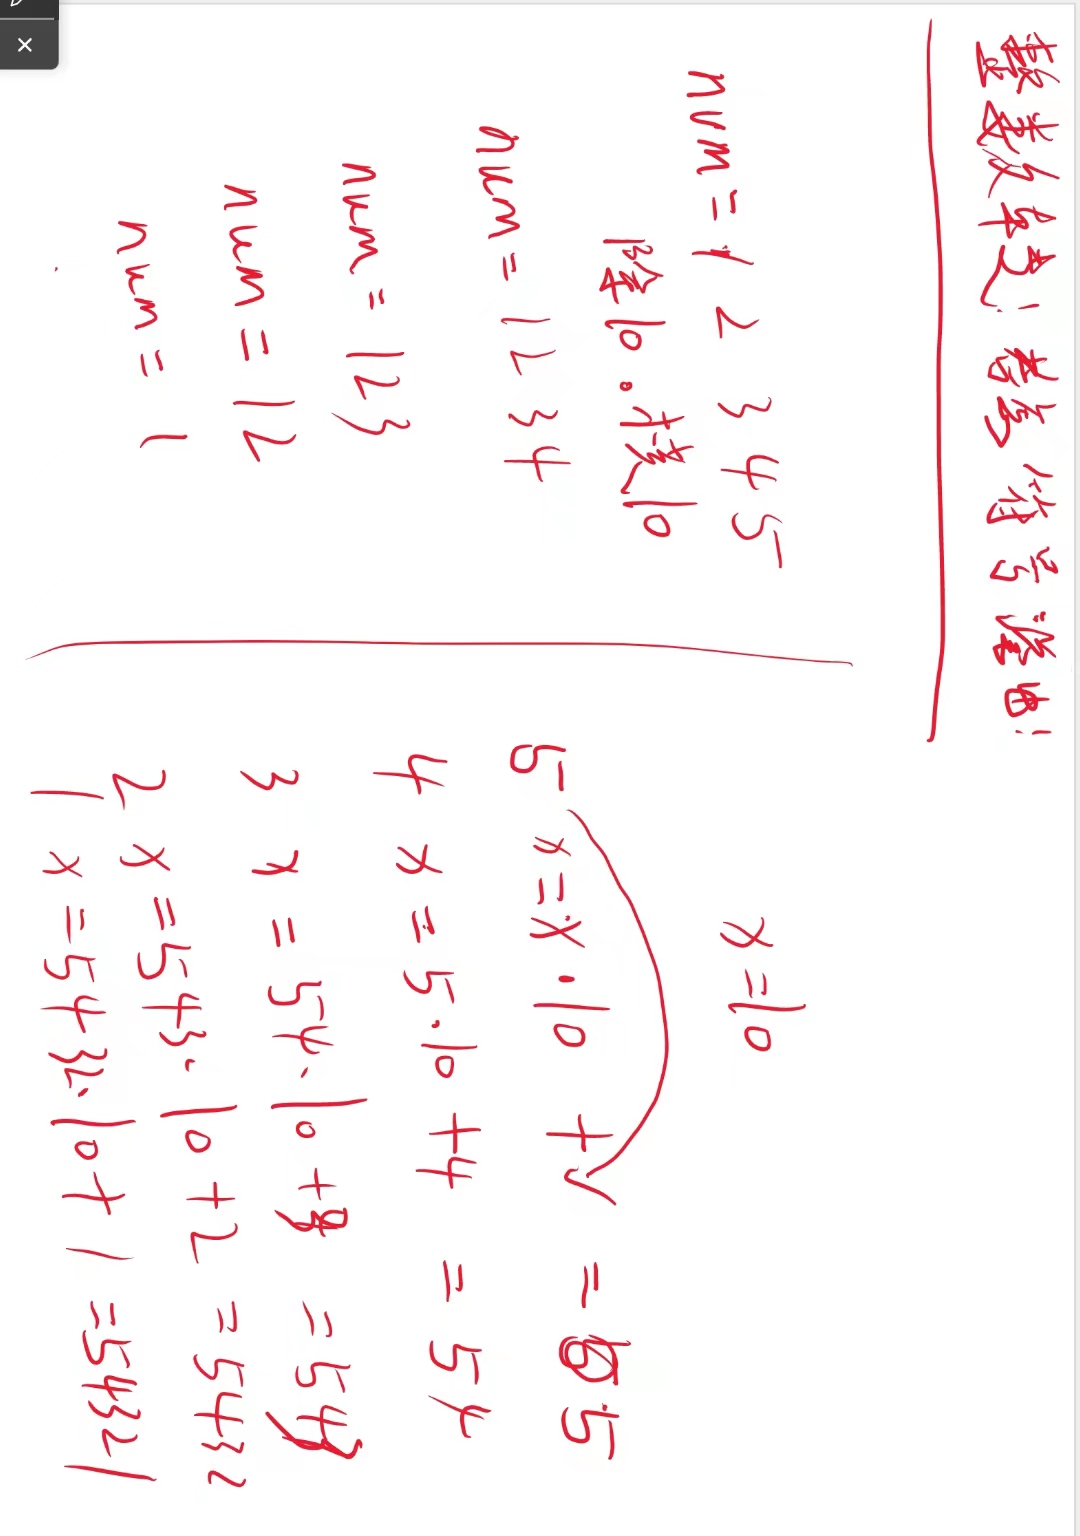 整数反转! 考虑符号溢出!
num = 1 2 3 4 5
除10。模10
num = 1234
num = 123
num = 12
num = 1
x = 10
5 x = x · 10 + √ = 5
4 x = 5 · 10 + 4 = 54
3 x = 54 · 10 + 3 = 543
2 x = 543 · 10 + 2 = 5432
1 x = 5432 · 10 + 1 = 54321